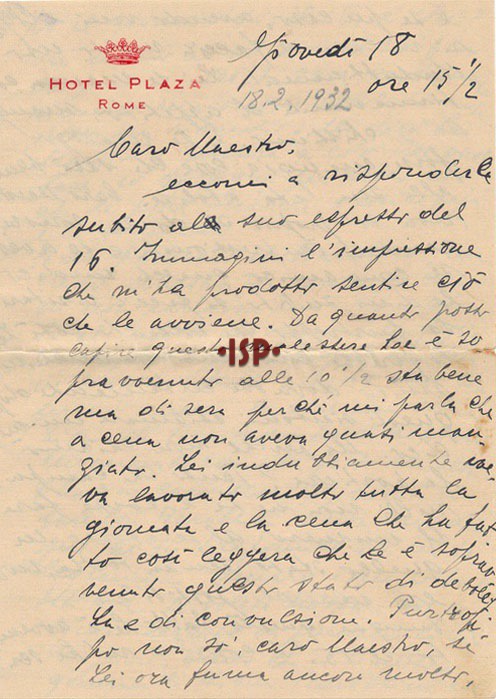 HOTEL PLAZA
ROME
Giovedì 18
18.2.1932 ore 15 1/2
Caro Maestro,
eccomi a risponderLa
subito al suo espresso del
16. Immagini l'impressione
che m'ha prodotto sentire ciò
che le avviene. Da quanto posso
capire questo malessere Le è so
pravvenuto alle 10 1/2 sta bene
·ISP·
ma di sera perché mi parla che
a cena non aveva quasi man
giato. Lei indubbiamente ave
va lavorato molto tutta la
giornata e la cena che ha fat
to così leggera che Le è soprav
venuto questo stato di debolez
za e di convulsione. Purtrop
po non so, caro Maestro, se
Lei ora fuma ancora molto,